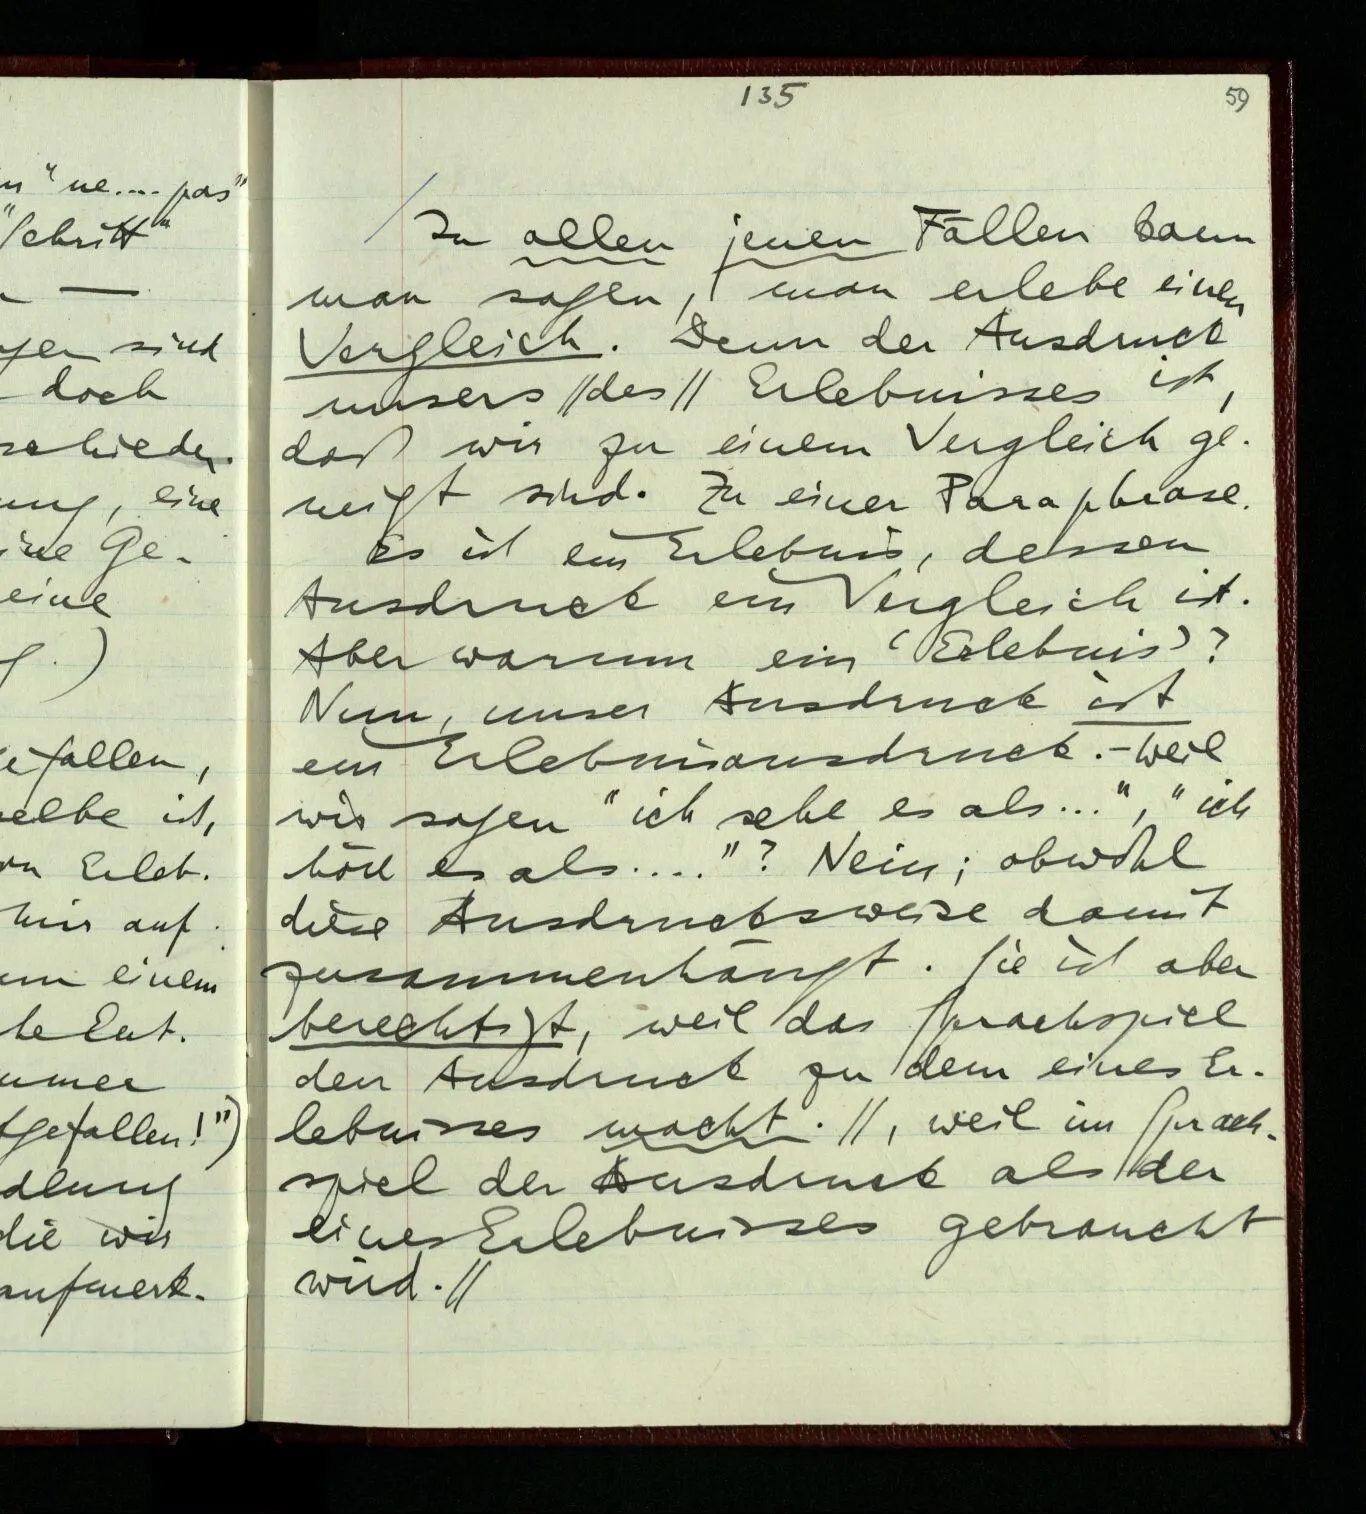 135
59
"ne.... pas"
"Schritt"
sind
doch
eine
ine Ge-
eine
g.)
gefallen,
selbe ist,
Erleb-
mir auf-
einem
te Ent-
immer
tgefallen!")
dlung
die wir
aufmerk-
/ In allen jenen Fällen kann
man sagen, man erlebe einen
Vergleich. Denn der Ausdruck
unsers //des// Erlebnisses ist,
daß wir zu einem Vergleich ge-
neigt sind. Zu einer Paraphrase.
Es ist ein Erlebnis, dessen
Ausdruck ein Vergleich ist.
Aber warum ein 'Erlebnis'?
Nun, unser Ausdruck ist
ein Erlebnisausdruck. – Weil
wir sagen "ich sehe es als...", "ich
höre es als...."? Nein; obwohl
diese Ausdrucksweise damit
zusammenhängt. Sie ist aber
berechtigt, weil das Sprachspiel
den Ausdruck zu dem eines Er-
lebnisses macht. //, weil im Sprach-
spiel der Ausdruck als der
eines Erlebnisses gebraucht
wird.//